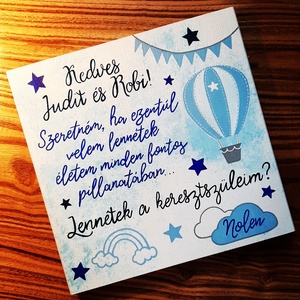 Kedves
Judit és Robi!
Szeretném, ha ezentúl
velem lennétek
életem minden fontos
pillanatában...
Lennétek a keresztszüleim?
Nolen